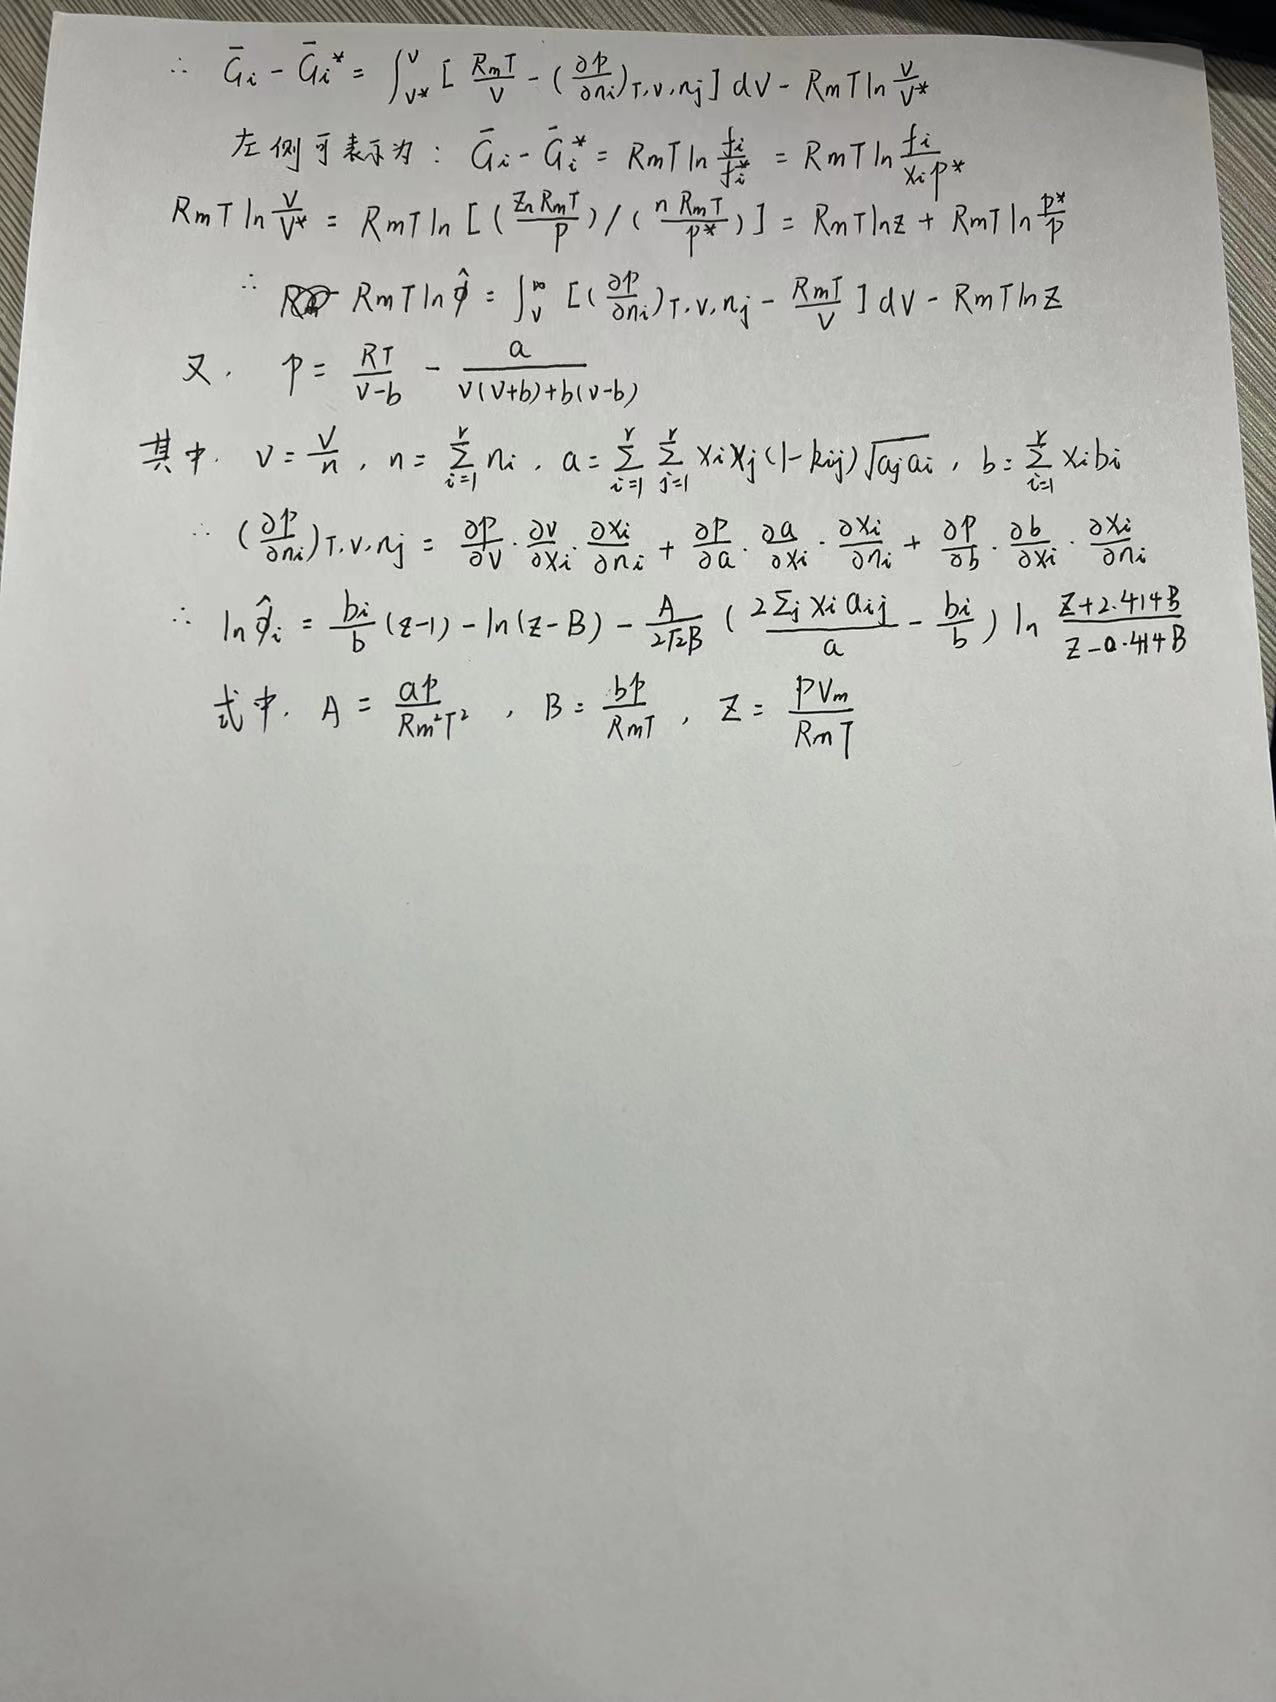 ∴ Ḡi - Ḡi* = ∫_{V*}^{V} [ RmT/V - (∂p/∂ni)T,V,nj ] dV - RmT ln V/V*
左侧可表示为: Ḡi - Ḡi* = RmT ln fi/fi* = RmT ln fi/(xi p*)
RmT ln V/V* = RmT ln [ (ZnRmT/p) / (nRmT/p*) ] = RmT ln z + RmT ln p*/p
∴ RmT ln φ̂ = ∫_{V}^{∞} [ (∂p/∂ni)T,V,nj - RmT/V ] dV - RmT ln Z
又, p = RT/(v-b) - a/(v(v+b)+b(v-b))
其中, v = V/n, n = Σ_{i=1}^{r} ni, a = Σ_{i=1}^{r} Σ_{j=1}^{r} xi xj (1-kij) √(aj ai), b = Σ_{i=1}^{r} xi bi
∴ (∂p/∂ni)T,V,nj = ∂p/∂v · ∂v/∂xi · ∂xi/∂ni + ∂p/∂a · ∂a/∂xi · ∂xi/∂ni + ∂p/∂b · ∂b/∂xi · ∂xi/∂ni
∴ ln φ̂i = bi/b (z-1) - ln(z-B) - A/(2√2B) ( 2Σj xi aij / a - bi/b ) ln (Z+2.414B)/(Z-0.414B)
式中, A = ap/(Rm²T²), B = bp/(RmT), Z = pVm/(RmT)